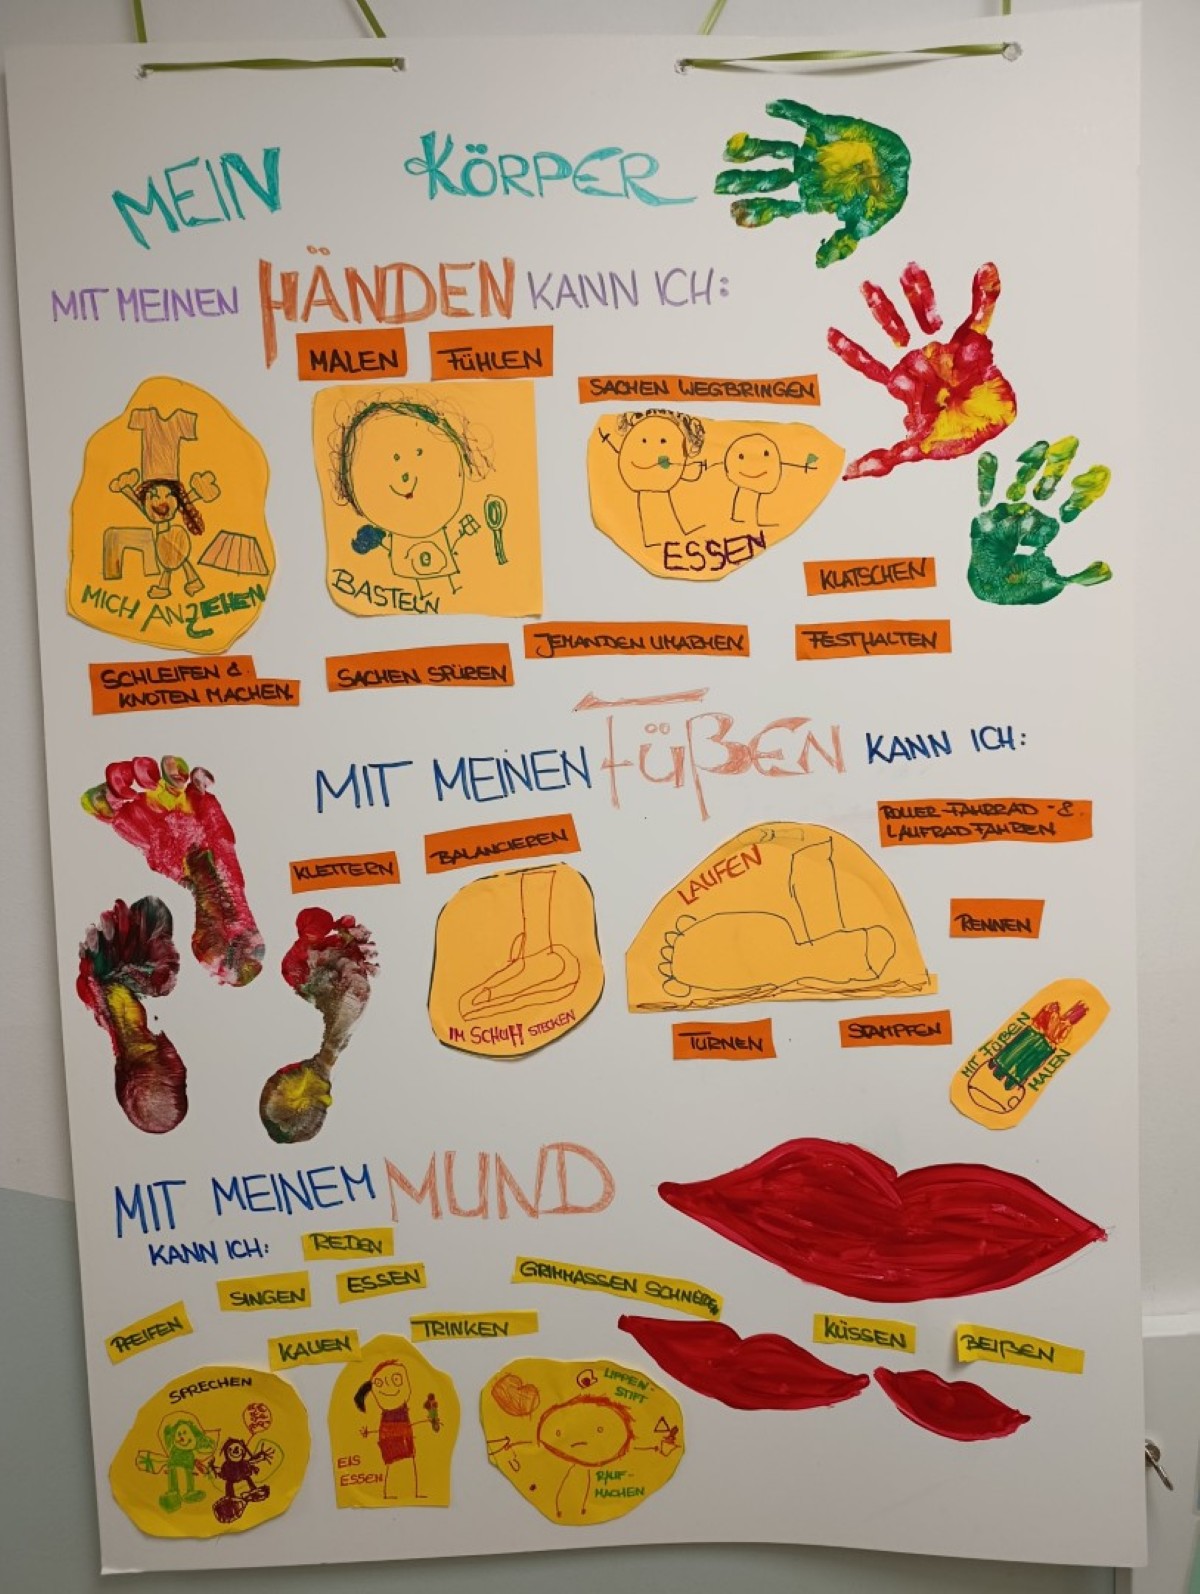 MEIN KÖRPER
MIT MEINEN HÄNDEN KANN ICH:
MALEN
FÜHLEN
SACHEN WEGBRINGEN
MICH ANZIEHEN
BASTELN
ESSEN
KLATSCHEN
JEMANDEN UMARMEN
FESTHALTEN
SCHLEIFEN &
KNOTEN MACHEN.
SACHEN SPÜREN
MIT MEINEN FÜßEN KANN ICH:
KLETTERN
BALANCIEREN
LAUFEN
ROLLER-FAHRRAD-&
LAUFRAD FAHREN
RENNEN
IM SCHUH STECKEN
TURNEN
STAMPFEN
MIT FÜßEN
MALEN
MIT MEINEM MUND
KANN ICH:
REDEN
SINGEN
ESSEN
GRIMMASSEN SCHNEIDEN
PFEIFEN
KAUEN
TRINKEN
KÜSSEN
BEIßEN
SPRECHEN
EIS
ESSEN
LIPPEN-
STIFT
RAUF-
MACHEN